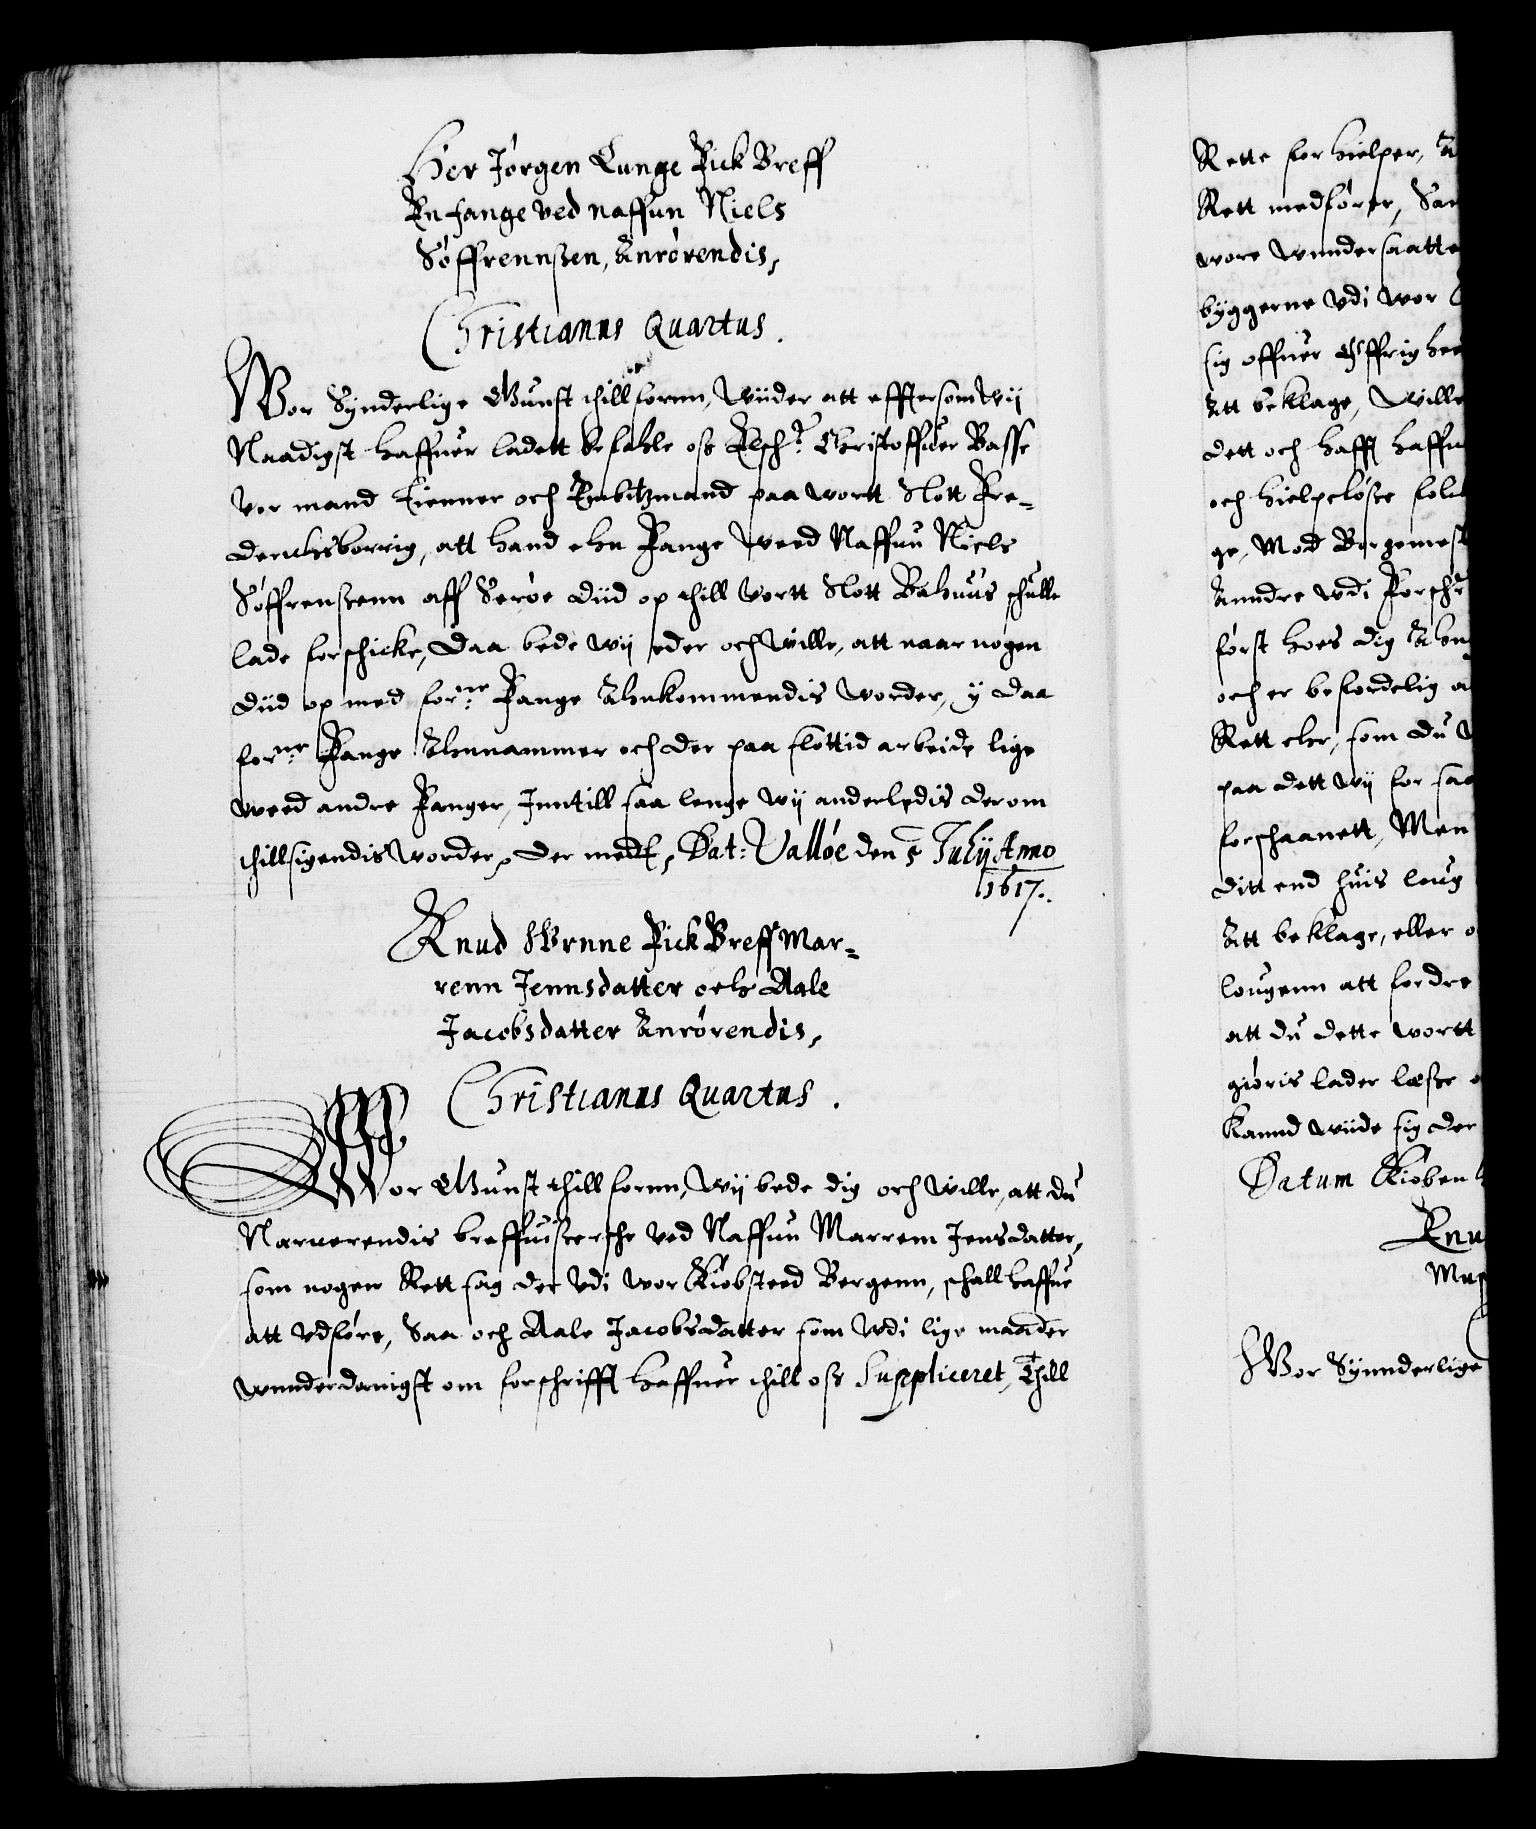 Her Jørgen Lunge Fick Breff
En fange ved naffun Niels
Søffrennssen, Anrørendis,
Christianus Quartus.
Wor Synderlige Gunst thillfornn, Wiider att efftersom Wij
Naadigst haffuer ladett befahle oss Elsch: Christoffuer Basse
Vor mand Tienner och Embitzmand paa wortt Slott Fre-
derichsborrig, att hand ehn Fange Weed Naffuu Niels
Søffrenssenn aff Serøe diid op thill Vortt Slott Bahuus schulle
lade forschicke, Daa bede wij eder och Wille, att naar nogen
diid op med forne: Fange Ahnkommendis Vorder, y daa
forne: Fange Ahnnammer och der paa slottid arbeide lige
weed andre Fanger, Inntill saa lenge wij anderledis derom
thillsigendis Vorder, Der med &c, Dat: Valløe den 5 Julij Anno
1617..
Knud Wrnne Fick Breff Mar-
renn Jennsdatter och Aale
Jacobsdatter Anrørendis,
Christianus Quartus.
Wor Gunst thillfornn, Wij bede dig och Wille, att du
Nærverendis breffuisersche ved Naffuu Marrenn Jensdatter,
som nogen Rett sag der Vdi wor Kiøbsteed Bergenn, schall haffue
att Vdføre, Saa och Aale Jacobsdatter som Vdi lige maader
wnnderdanigst om forschrifft haffuer thill oss Suppliceret, Thill
Rette forhielper,
Rett medfører,
wore Wnndersaatte
byggerne Vdi wor
sig offuer
Att beklage, Wille
dett och hafft
och hielpeløsse
ge, Mod Borgemest
Anndre Vdi
først hoes dig
och er befordelig
Rett eler, som du
paa dett wij for
forschaanett, Men
ditt end huis loug
Att beklage, eller
lougenn att fordre
att du dette wortt
giøris lader læsse
Kannd wiide sig der
Datum Kiøben
Knu
Mu
Wor Synnderlige